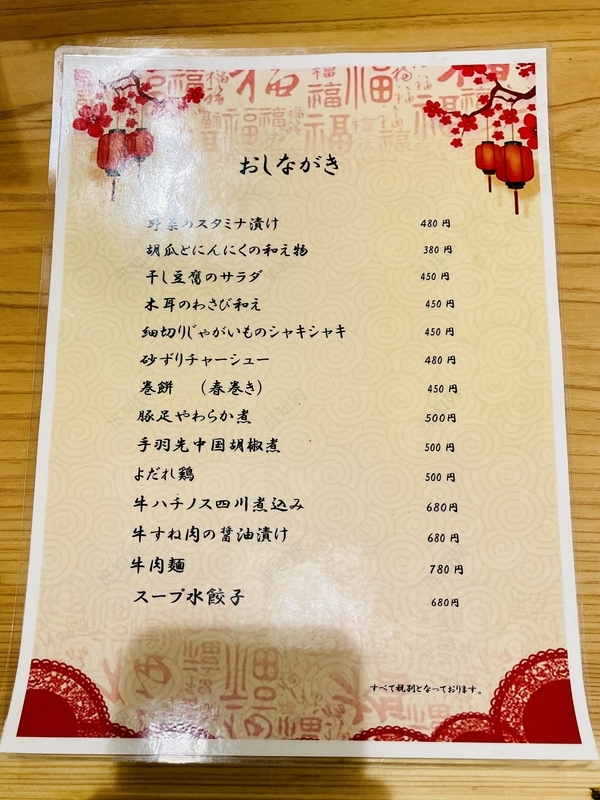 おしながき
野菜のスタミナ漬け 480円
胡瓜とにんにくの和え物 380円
干し豆腐のサラダ 450円
木耳のわさび和え 450円
細切りじゃがいものシャキシャキ 450円
砂ずりチャーシュー 480円
巻餅 （春巻き） 450円
豚足やわらか煮 500円
手羽先中国胡椒煮 500円
よだれ鶏 500円
牛ハチノス四川煮込み 680円
牛すね肉の醤油漬け 680円
牛肉麺 780円
スープ水餃子 680円
すべて税別となっております。